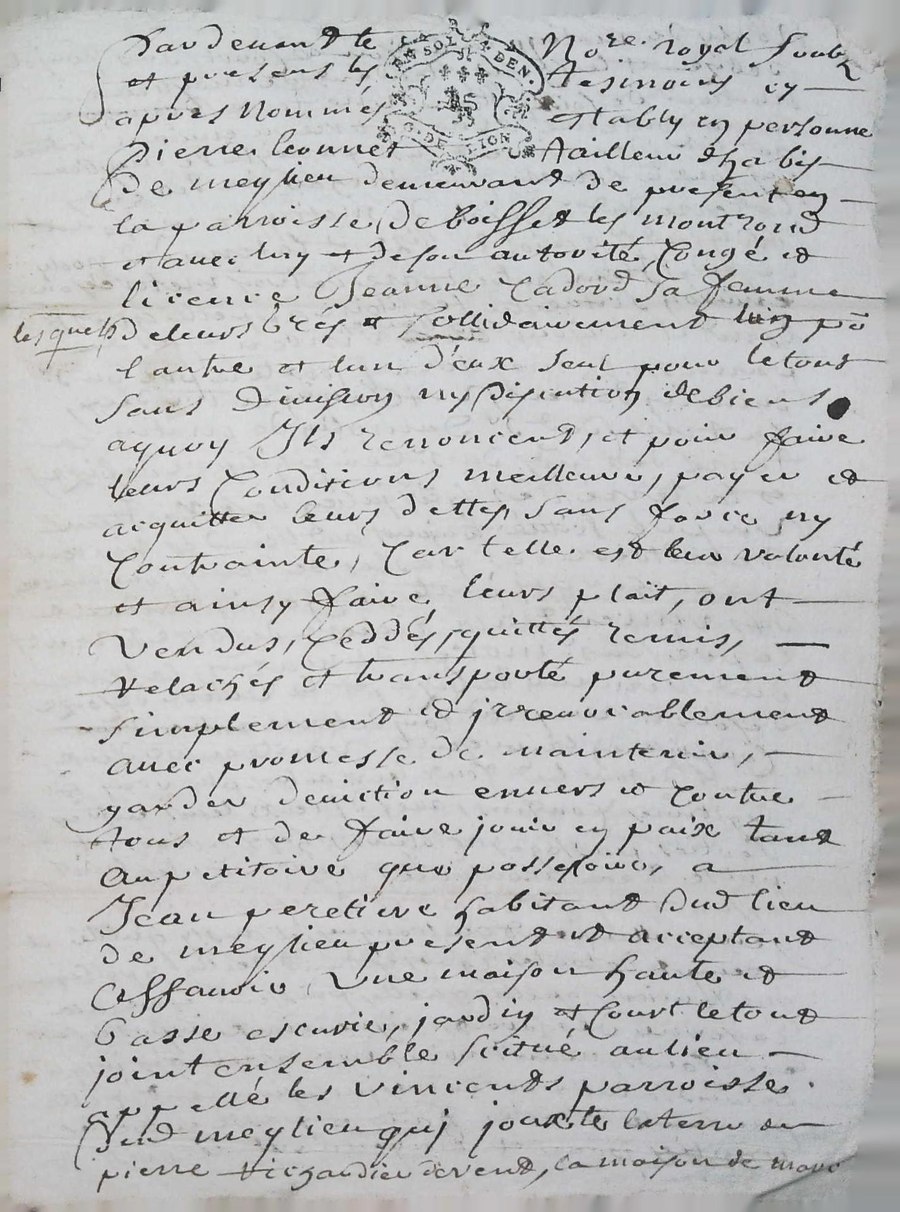 Pardevant le No.re royal soubz.
et presens les tesmoins cy
apres nommés estably en personne
SOL DEN.
G. DE LION
pierre leonnet tailleur d'habis
de meylieu demeurant de present en
la parroisse de boisset les montrond
et avec luy et de son autorité, congé et
licence Jeanne sa femme
lesquels de leurs grés et sollidairement lun pō
l'autre et lun d'eux seul pour le tout
sans division ny discution de biens
aquoy Ils renoncent, et pour faire
leurs conditions meilleure, payer et
acquitter leurs dettes, sans force ny
contrainte, car telle est leur volonté
et ainsy faire leurs plait, ont
vendus, ceddés, quittés remis,
relachés et transporté purement
simplement et jrrevocablement
avec promesse de maintenir,
garder deviction envers et contre
tous et de faire jouir en paix tant
au petitoire que possessoire, a
Jean peretiere habitant dud lieu
de meylieu present et acceptant
assavoir une maison haute et
basse escurie, jardin et court le tout
joint ensemble scitué au lieu
appellé les vincents parroisse
dud meylieu qui jouxte la terre de
pierre de vent, la maison de marc